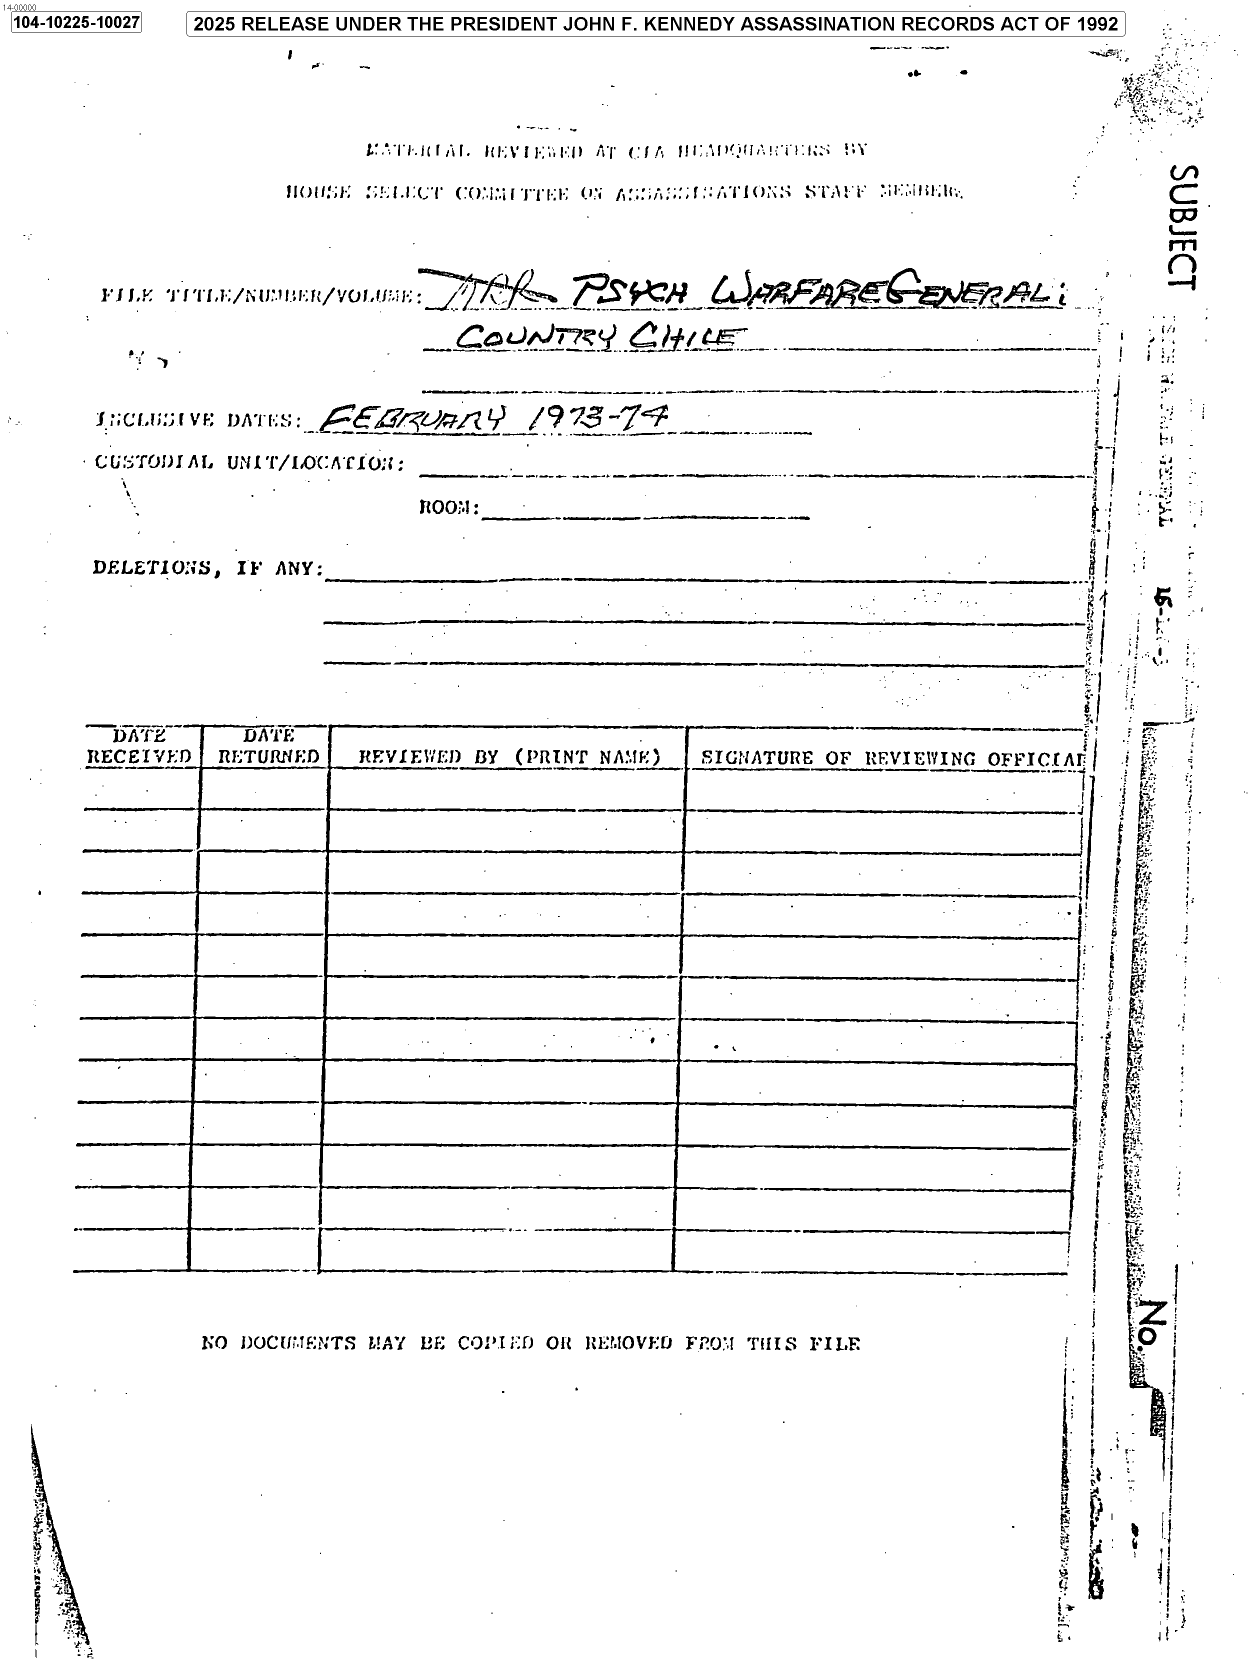 14-00000
104-10225-10027
2025 RELEASE UNDER THE PRESIDENT JOHN F. KENNEDY ASSASSINATION RECORDS ACT OF 1992
MATERIAL REVIEWED AT CIA HEADQUARTERS BY
HOUSE SELECT COMMITTEE ON ASSASSINATIONS STAFF MEMBERS
FILE TITLE/NUMBER/VOLUME: PSYCH WARFARE GENERAL:
COUNTRY CHILE
INCLUSIVE DATES: FEBRUARY 1973-74
CUSTODIAL UNIT/LOCATION:
ROOM:
DELETIONS, IF ANY:
DATE RECEIVED DATE RETURNED REVIEWED BY (PRINT NAME) SIGNATURE OF REVIEWING OFFICIAL
NO DOCUMENTS MAY BE COPIED OR REMOVED FROM THIS FILE
SUBJECT
No.